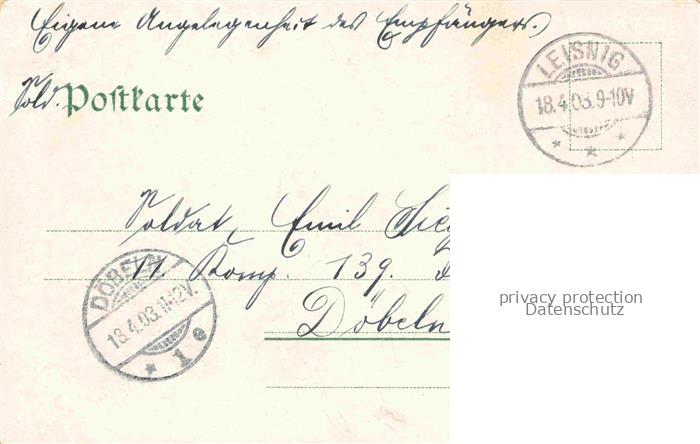 Eigene Angelegenheit des Empfängers.
Sold. Postkarte
LEISNIG
18.4.03. 9-10V
Soldat, Emil
11. Komp. 139.
Döbeln
DÖBELN
18.4.03. 11-12V.
1 e
privacy protection
Datenschutz